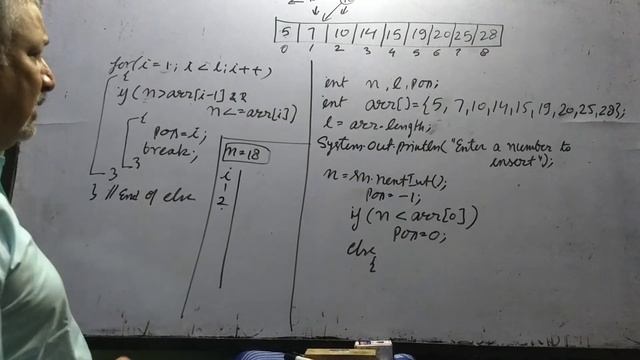 5 7 10 14 15 19 20 25 28
0 1 2 3 4 5 6 7 8
int n, l, pos;
int arr[]={5, 7, 10, 14, 15, 19, 20, 25, 28};
l = arr.length;
System.out.println("Enter a number to
insert");
n = sn.nextInt();
pos = -1;
if (n < arr[0])
pos = 0;
else
{
for(i=1; i<l; i++)
{
if (n>arr[i-1] &&
n<=arr[i])
{
pos=i;
break;
}
}
} // End of else
n=18
i
1
2